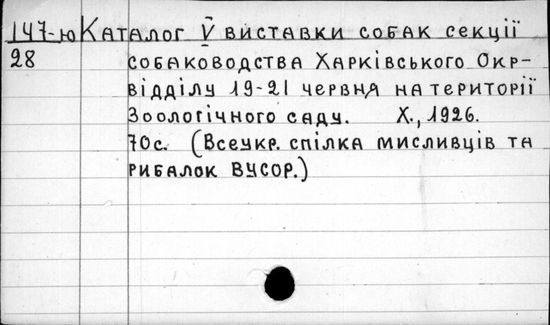 147-ю Каталог V виставки собак секції
28 собаководства Харківського Окр-
відділу 19-21 червня на території
Зоологічного саду. Х., 1926.
70с. (Всеукр. спілка мисливців та
рибалок ВУСОР.)